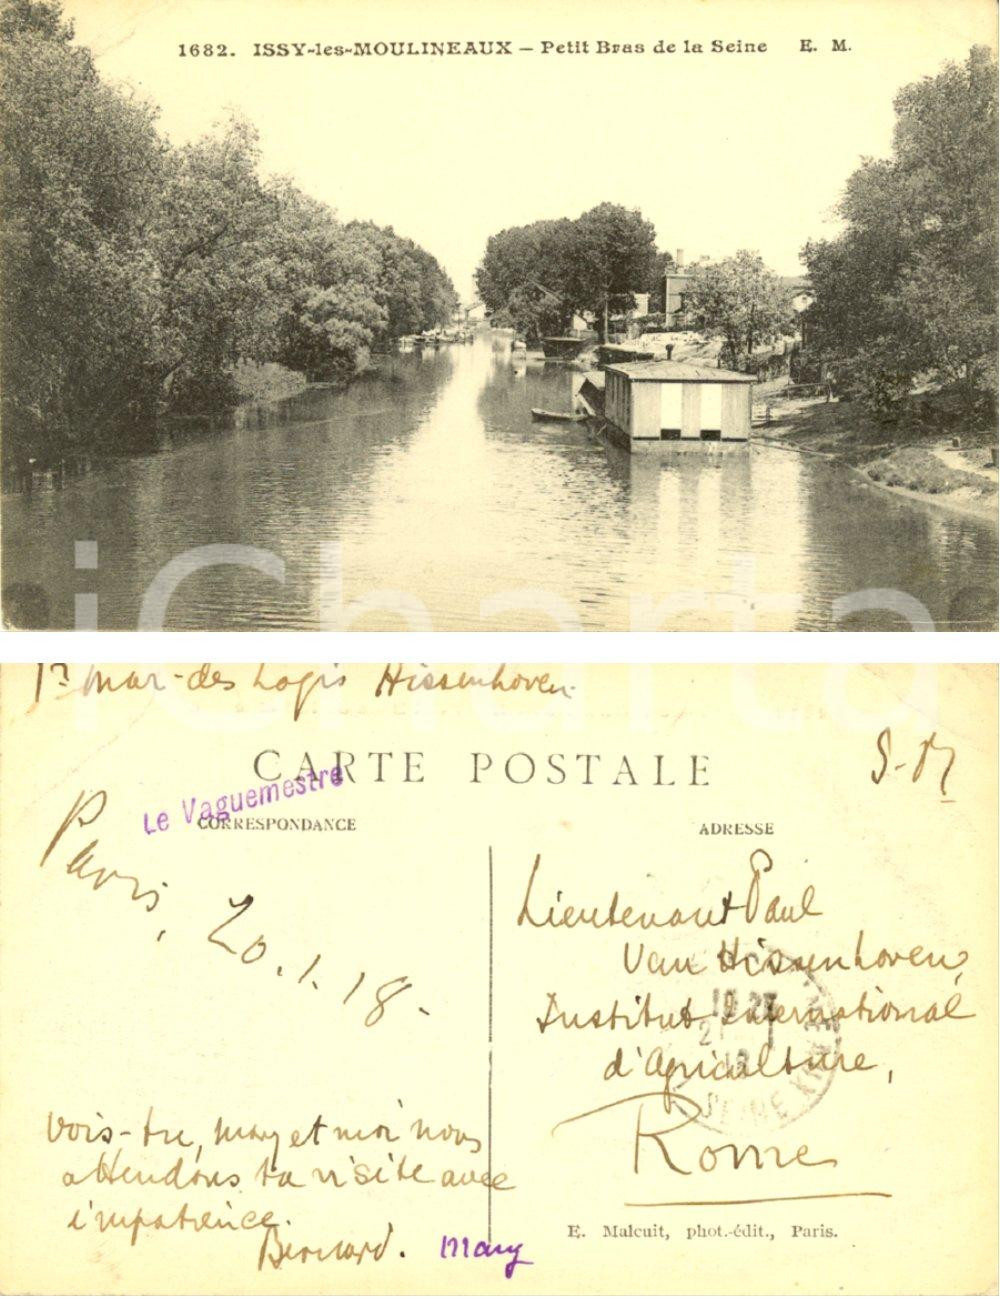 1682. ISSY-les-MOULINEAUX – Petit Bras de la Seine E. M.
iCharta
mar-des Logis Hissenhoven.
CARTE POSTALE
S.M
Le Vaguemestre
CORRESPONDANCE
ADRESSE
Paris, 20.1.18.
Lieutenant Paul
Van Hissenhoven,
Institut International
d'Agriculture,
Rome
vois-tu, Mary et moi nous
attendons ta visite avec
impatience.
Bernard. Mary
E. Malcuit, phot.-édit., Paris.